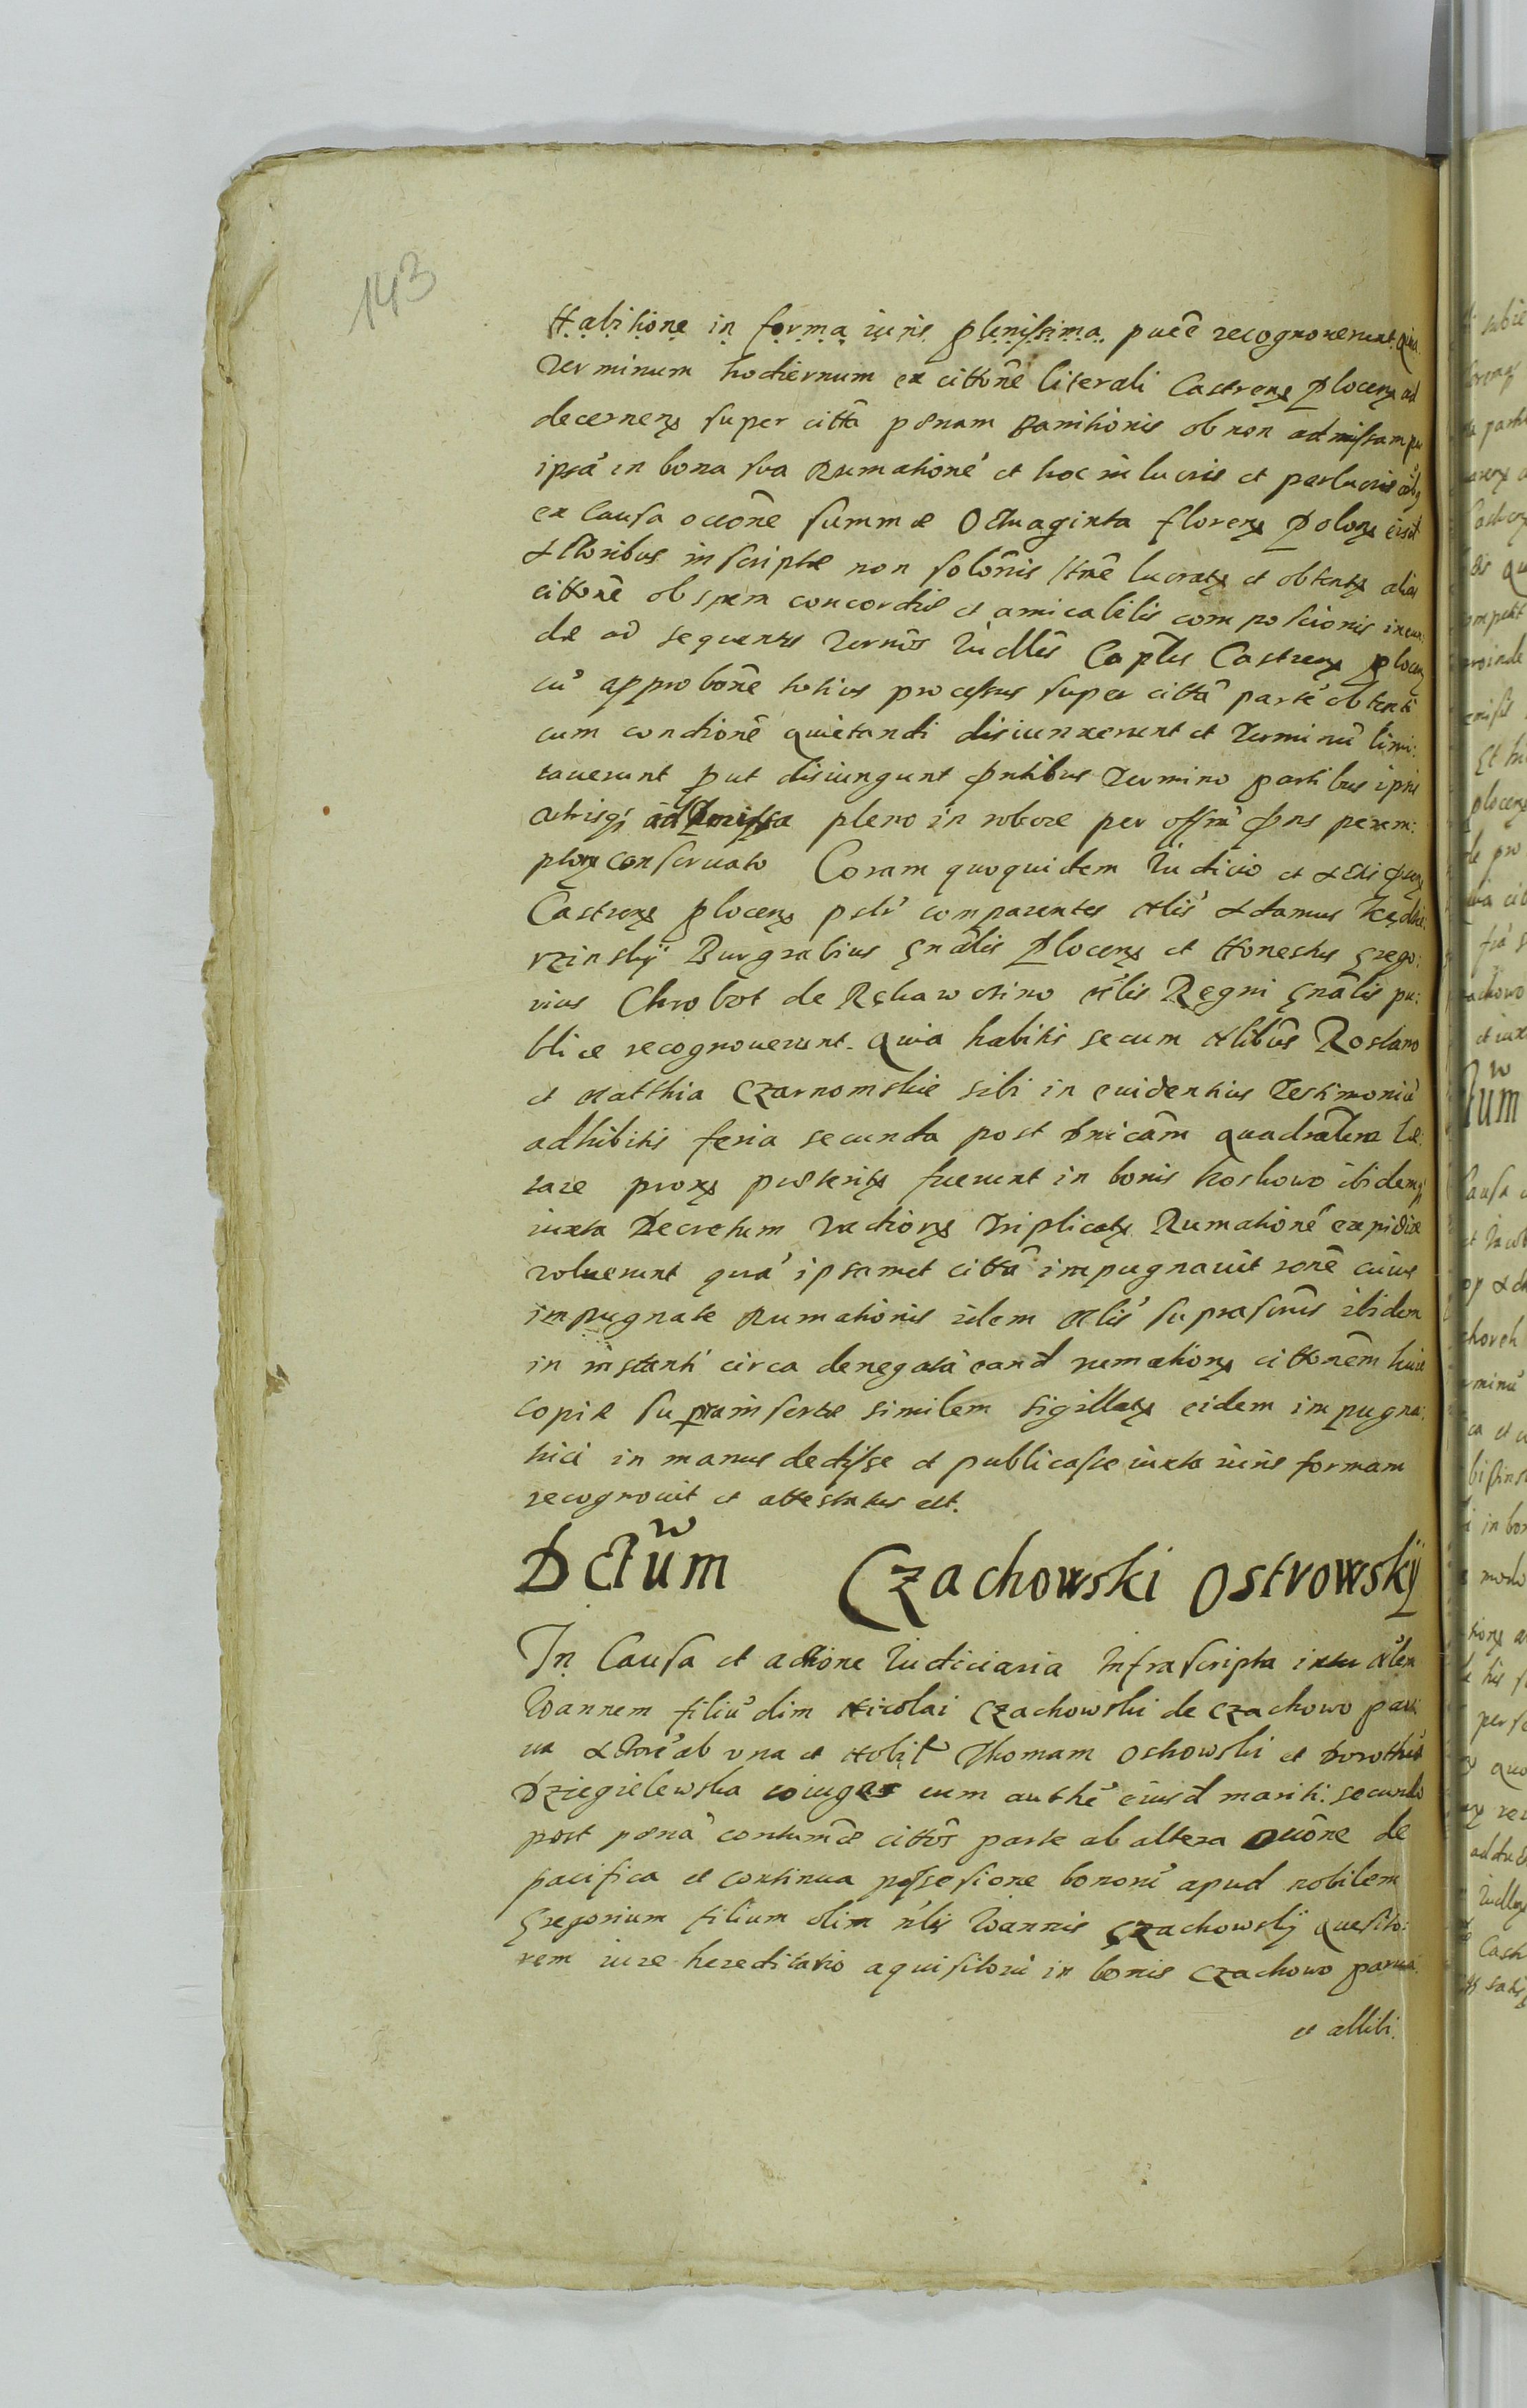 143
Habitione in forma iuris plenissima. pucẽ recognoverunt Quia
Terminum hodiernum ex cittoñe literali Castreñ Ploceñ ad
decerneñ super cittã pœnam Banitionis ob non admissam per
ipsã in bona sua Rumationẽ et hoc in lucris et perlucris
ex Causa occoñe summæ Octuaginta floreñ Poloñ
Actoribus inscriptæ non soloñis lucratꝫ et obtentꝫ alias
cittoñe ob spem concordiæ et amicabilis composicionis ineun:
dæ ad sequentes Termõs Iudlẽs Caplẽs Castreñ Ploceñ
cũ approboñe totius processus super cittã partẽ obtenti
cum condioñe quietandi disiunxerunt et Terminũ limi:
taverunt put disiungunt pñtibus Termino partibus ipsis
utrisqꝫ admissa pleno in robore per offm̃ pñs perem:
ptoꝫ conservato Coram quoquidem Iudicio et Actis pñ
Castreñ Ploceñ comparentes Nlis Adamus Kędzie
rzinskÿ Burgrabius Gnãlis Ploceñ et Honestus Grego:
rius Chrobot de Rękawczino Mlis Regni Gnãlis pu:
blice recognoverunt. Quia habitis secum Nlibũs Roslano
et Matthia Czarnomskie sibi in evidentius Testimoniũ
adhibitis feria secunda post Dnicãm Quadrãlem Læ:
tare proxꝫ præteritꝫ fuerunt in bonis Koskowo ibidemqꝫ
iuxta Decretum Triplicatꝫ Rumationẽ expidire
voluerunt quã ipsamet cittã impugnavit roñe cuius
impugnatæ Rumationis idem Mlis suprascriũs ibidem
in instanti circa denegatã eand rumationꝫ cittoñem huic
copiæ suprainsertæ similem sigillatꝫ eidem impugna:
trici in manus dedisse et publicasse iuxta iuris formam
recognovit et attestatus est.
Dctũm Czachowski Ostrowskÿ
In Causa et actione Iudiciaria Infrascripta inter Nlem
Ioannem filiũ olim Nicolai Czachowski de Czachowo par:
va Actorẽ ab una et Nobil Thomam Ostrowski et Dorotheã
Dziegielewska coiuges cum authẽ eiusd mariti: secundo
post pœnã contumãe cittos parte ab altera occoñe de
pacifica et continua possesione bonorũ apud nobilem
Gregorium filium olim nlis Ioannis Czachowskÿ quesito:
rem iure hereditario aquisitorũ in bonis Czachowo parva
et allibi.